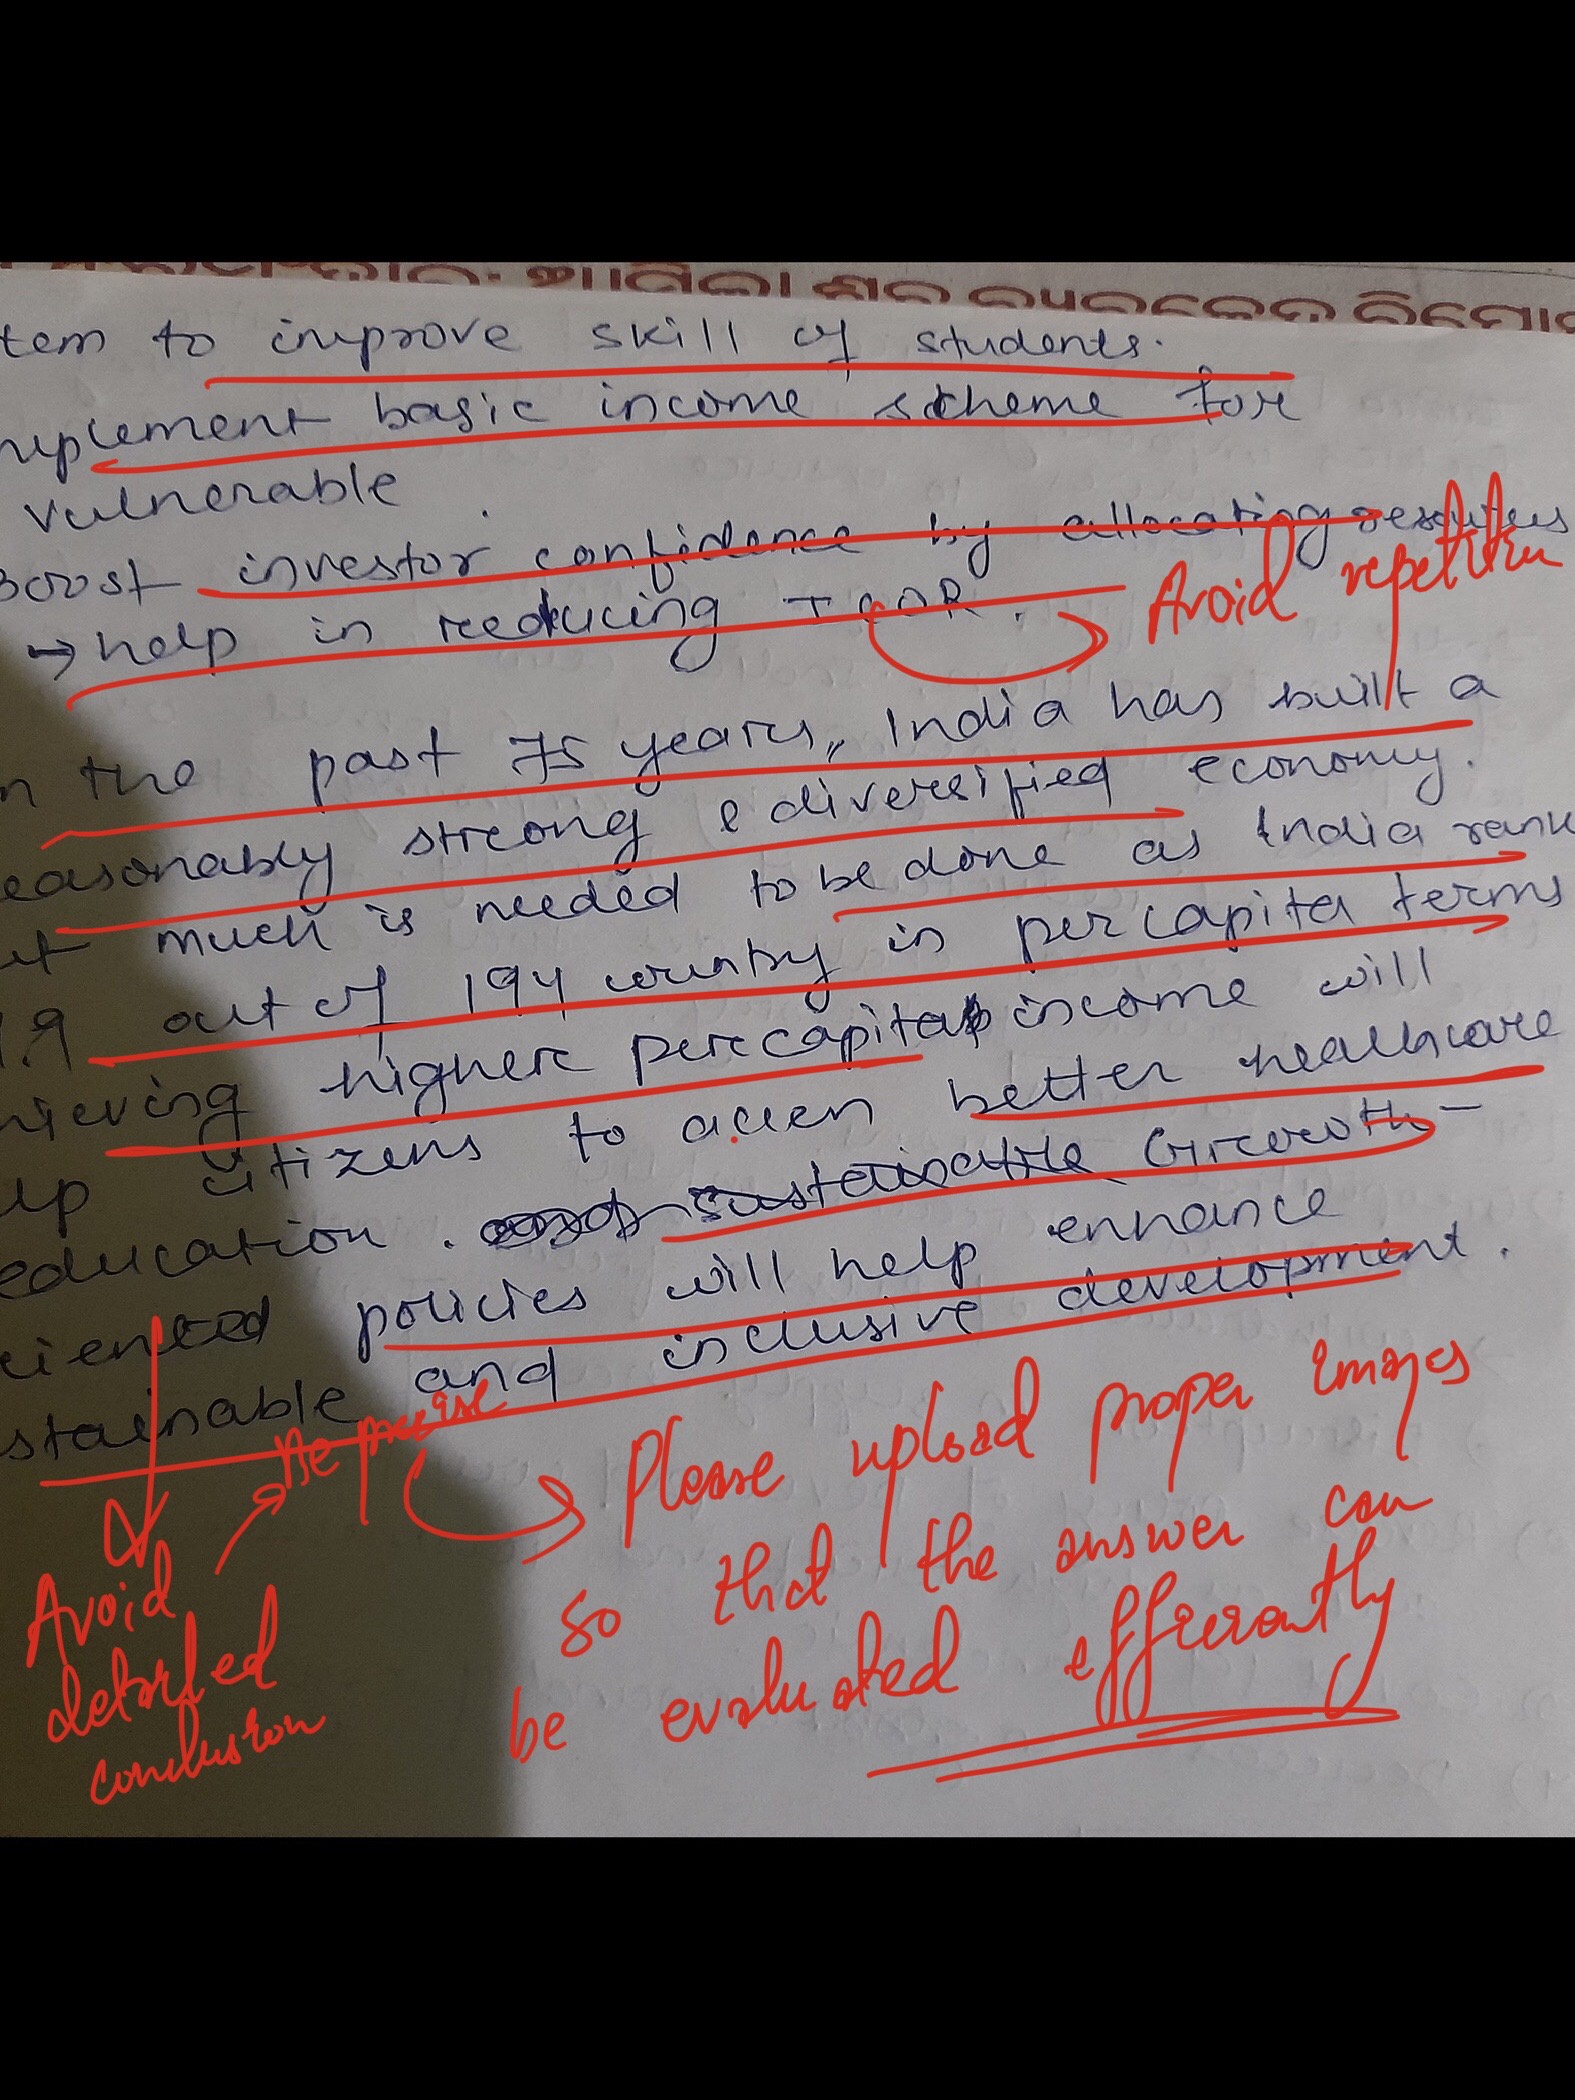 tem to improve skill of students.
mplement basic income scheme for
vulnerable.
Boost investor confidence by allocating resources
→ help in reducing ICOR.
Avoid repetition
n the past 75 years, India has built a
easonably strong & diversified economy.
ut much is needed to be done as India rank
out of 194 country in percapita terms
hieving higher percapita income will
lp citizens to access better healthcare
education. and sustainable Growth-
riented policies will help enhance
stainable and inclusive development.
Be precise
Please upload proper images
so that the answer can
be evaluated efficiently
Avoid
detailed
conclusion